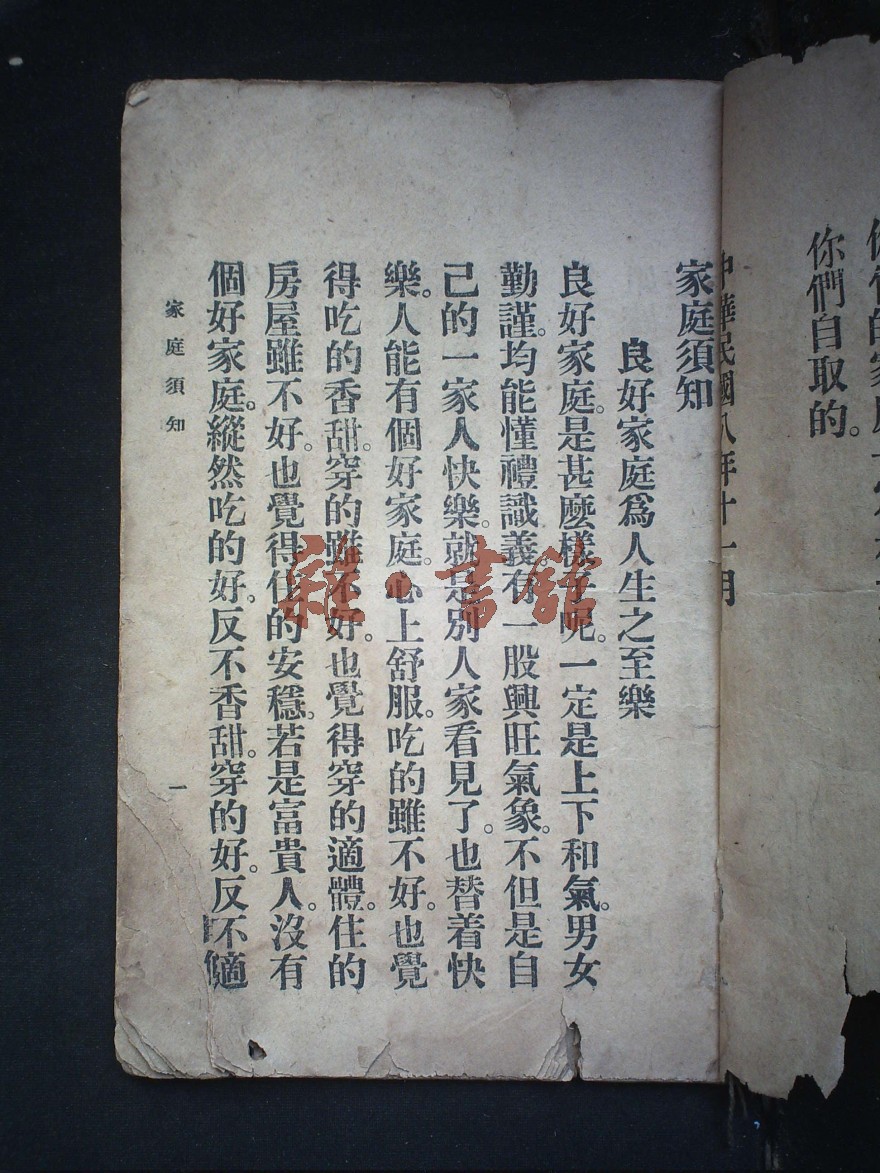 你們自取的。
中華民國八年十一月
家庭須知
良好家庭爲人生之至樂
良好家庭。是甚麽樣子呢。一定是上下和氣。男女
勤謹。均能懂禮識義。有一股興旺氣象。不但是自
己的一家人快樂。就是別人家看見了。也替着快
樂。人能有個好家庭。心上舒服。吃的雖不好。也覺
得吃的香甜。穿的雖不好。也覺得穿的適體。住的
房屋雖不好。也覺得住的安穩。若是富貴人。沒有
個好家庭。縱然吃的好。反不香甜。穿的好。反不適
家庭須知
一
雜·書館